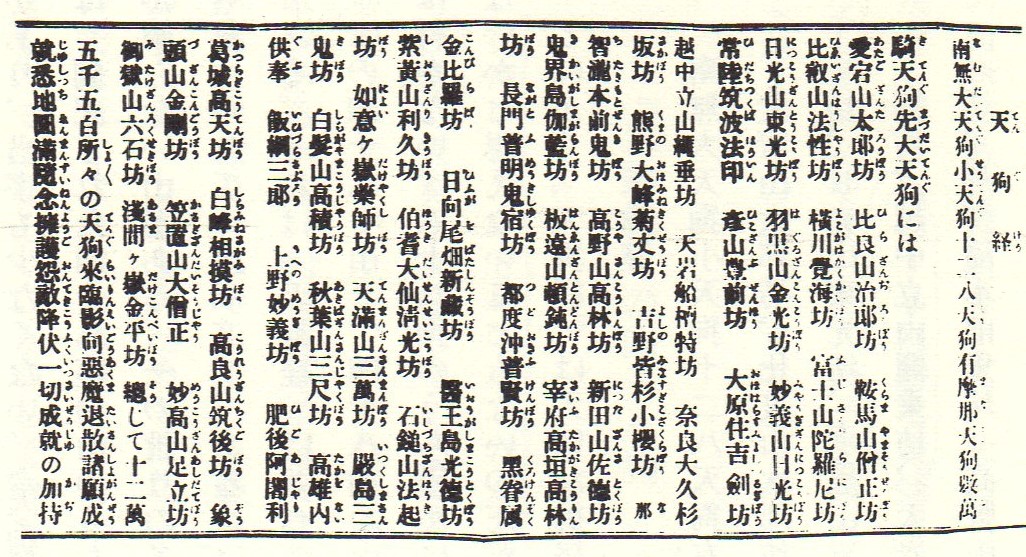 天狗経
南無大天狗小天狗十二八天狗有摩那天狗数萬
騎天狗先大天狗には
愛宕山太郎坊 比良山治郎坊 鞍馬山僧正坊
比叡山法性坊 横川覺海坊 富士山陀羅尼坊
日光山東光坊 羽黒山金光坊 妙義山日光坊
常陸筑波法印 彦山豊前坊 大原住吉劍坊
越中立山繩垂坊 天岩船檀特坊 奈良大久杉
坂坊 熊野大峰菊丈坊 吉野皆杉小櫻坊 那
智瀧本前鬼坊 高野山高林坊 新田山佐德坊
鬼界島伽藍坊 板遠山頓鈍坊 宰府高垣高林
坊 長門普明鬼宿坊 都度沖普賢坊 黒眷属
金比羅坊 日向尾畑新藏坊 醫王島光德坊
紫黄山利久坊 伯耆大仙淸光坊 石鎚山法起
坊 如意ヶ嶽藥師坊 天滿山三萬坊 嚴島三
鬼坊 白髪山高積坊 秋葉山三尺坊 高雄内
供奉 飯綱三郎 上野妙義坊 肥後阿闍利
葛城高天坊 白峰相摸坊 高良山筑後坊 象
頭山金剛坊 笠置山大僧正 妙高山足立坊
御嶽山六石坊 淺間ヶ嶽金平坊 總じて十二萬
五千五百所々の天狗來臨影向惡魔退散諸願成
就悉地圓滿隨念擁護怨敵降伏一切成就の加持